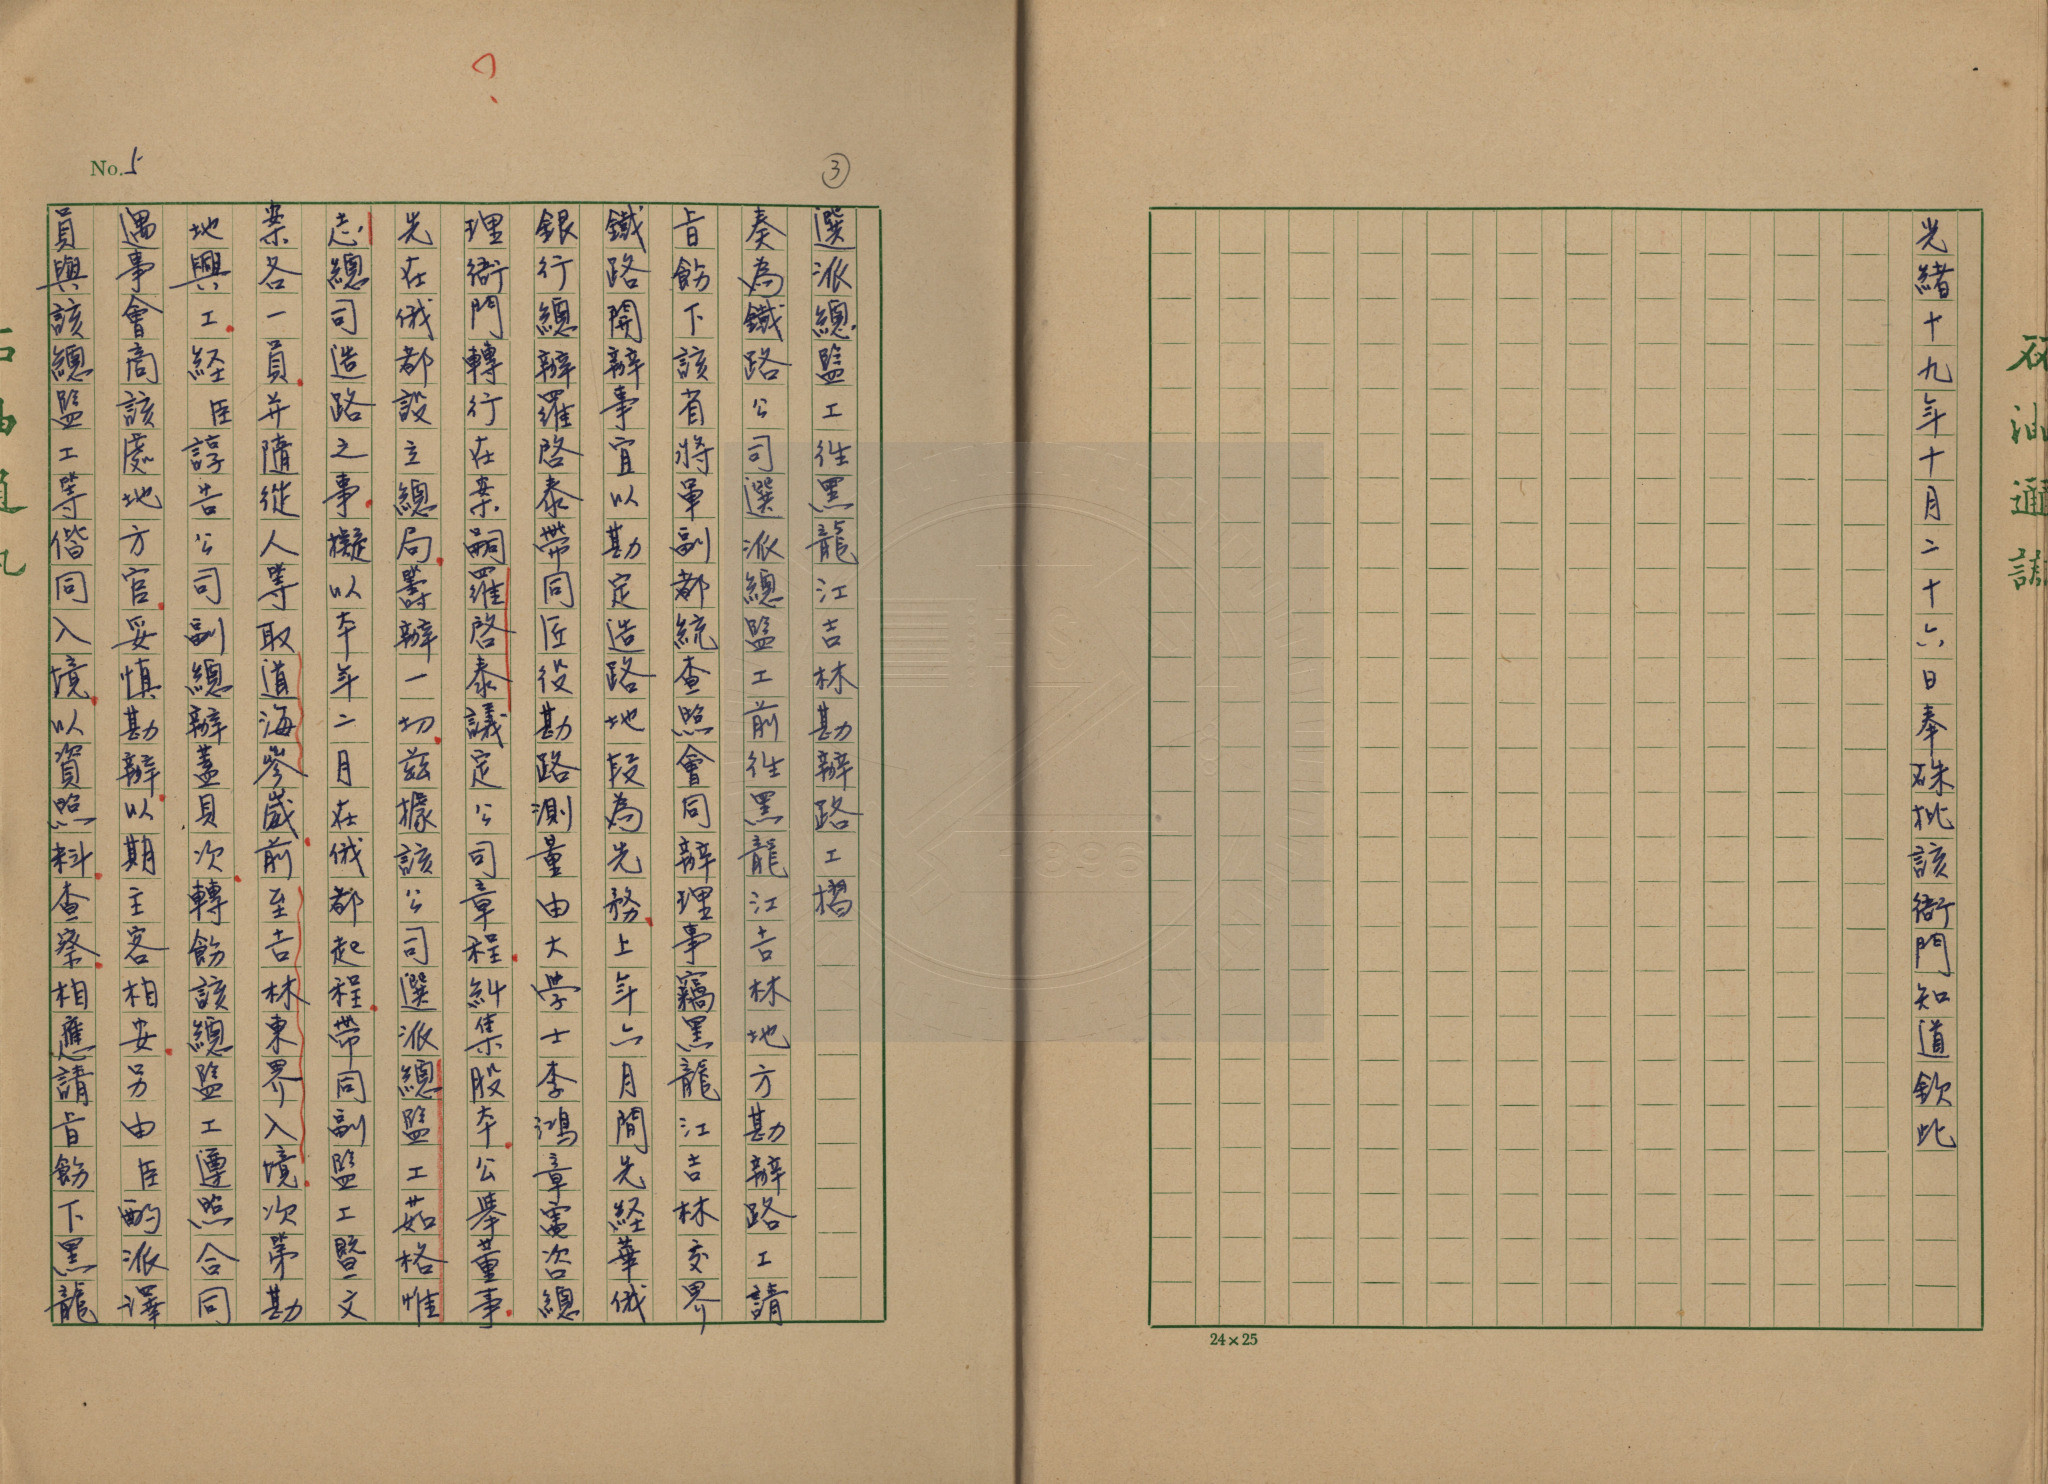 光緒十九年十月二十六日奉硃批該衙門知道欽此
24×25
No.5
③
選派總監工徃黑龍江吉林勘辦路工摺
奏為鐵路公司選派總監工前徃黑龍江吉林地方勘辦路工請
旨飭下該省將軍副都統查照會同辦理事竊黑龍江吉林交界
鐵路開辦事宜以勘定造路地段為先務上年六月間先経華俄
銀行總辦羅啓泰帶同匠役勘路測量由大學士李鴻章電咨總
理衙門轉行在案嗣羅啓泰議定公司章程糾集股本公舉董事
先在俄都設立總局籌辦一切茲據該公司選派總監工茹格惟
志總司造路之事擬以本年二月在俄都起程帶同副監工暨文
案各一員并隨從人等取道海參崴前至吉林東界入境次第勘
地興工経臣諄告公司副總辦蓋貝次轉飭該總監工遵照合同
遇事會商該處地方官妥慎勘辦以期主客相安另由臣酌派譯
員與該總監工等偕同入境以資照料查察相應請旨飭下黑龍